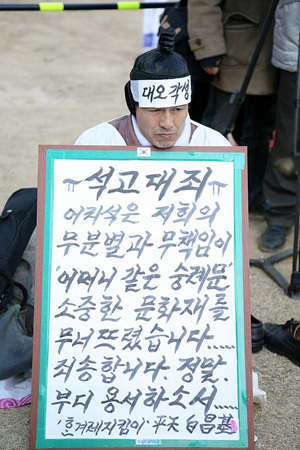 대오각성
ㅠ석고대죄ㅠ
어리석은 저희의
무분별과 무책임이
'어머니 같은 숭례문'
소중한 문화재를
무너뜨렸습니다....
죄송합니다. 정말.
부디 용서하소서....
平天 白昌基